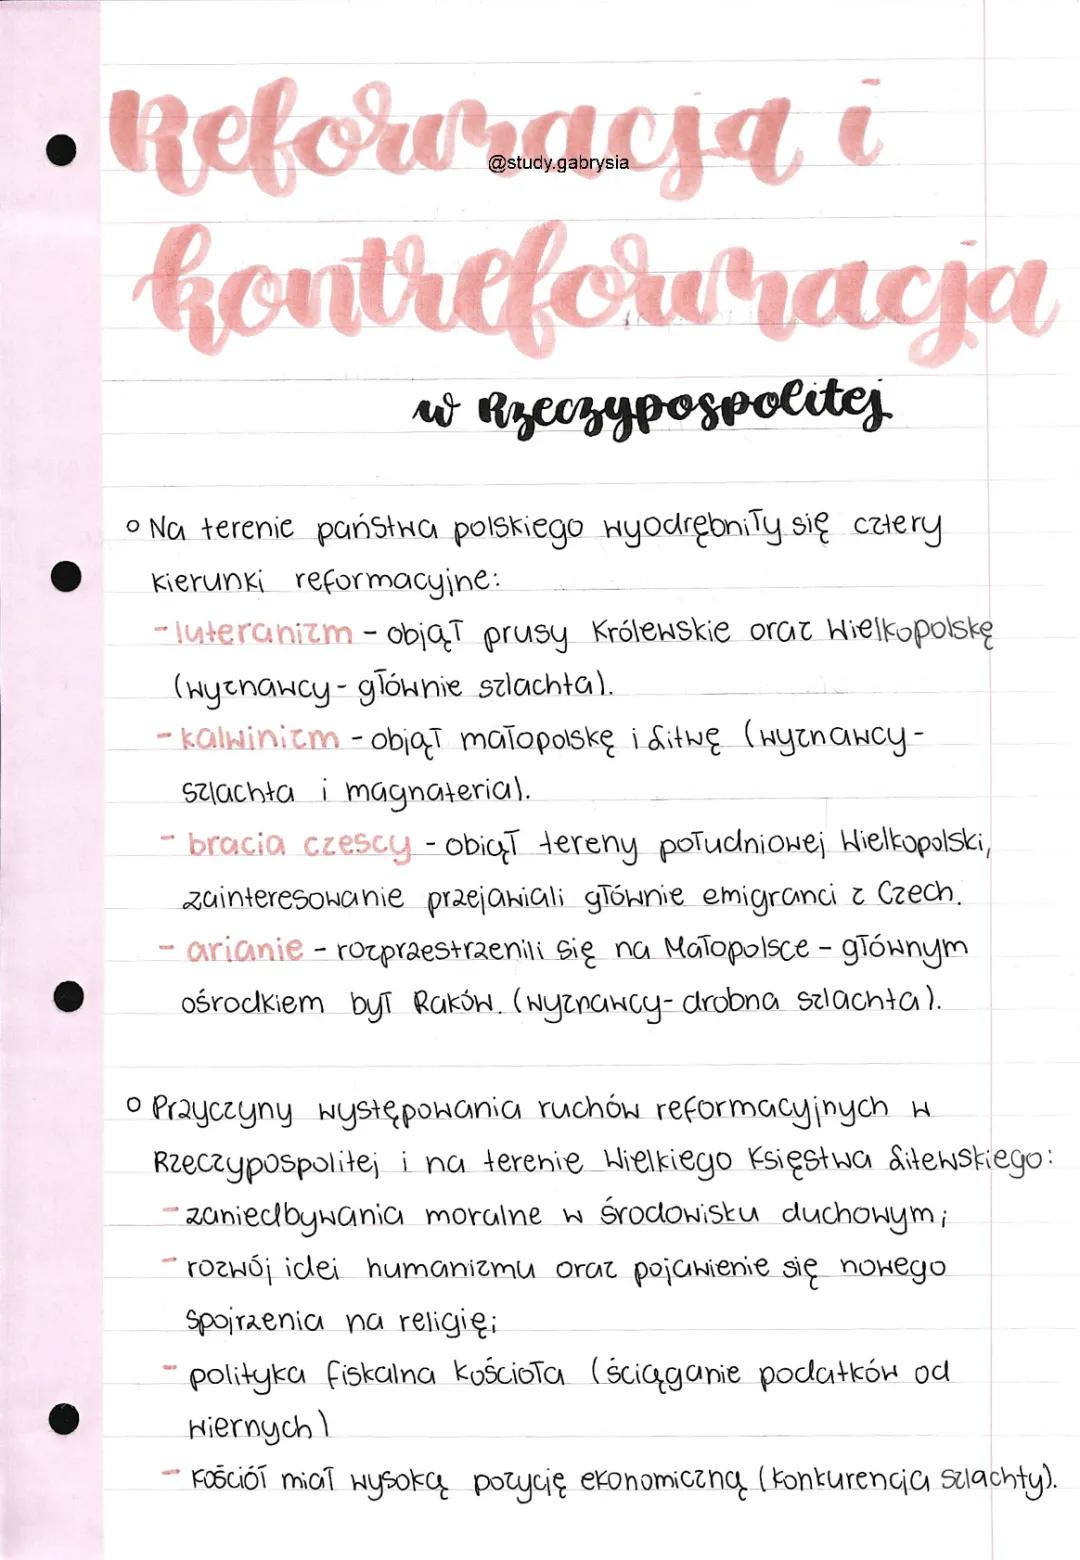 Reformacja i
@study.gabrysia
kontreformacja
w Rzeczypospolitej
Na terenie państwa polskiego wyodrębniły się cztery
kierunki reformacyjne:
- luteranizm - objął prusy Królewskie oraz Wielkopolskę
(wyznawcy - głównie szlachta).
- kalwinizm - objął małopolskę i Litwę (wyznawcy -
szlachta i magnateria).
- bracia czescy - obiął tereny południowej Wielkopolski,
zainteresowanie przejawiali głównie emigranci z Czech.
- arianie - rozprzestrzenili się na Małopolsce - głównym
ośrodkiem był Raków. (wyznawcy - drobna szlachta).
Przyczyny występowania ruchów reformacyjnych w
Rzeczypospolitej i na terenie Wielkiego Księstwa Litewskiego:
- zaniedbywania moralne w środowisku duchowym;
- rozwój idei humanizmu oraz pojawienie się nowego
spojrzenia na religię;
- polityka fiskalna kościoła (ściąganie podatków od
wiernych)
- kościół miał wysoką pozycję ekonomiczną (konkurencja szlachty).